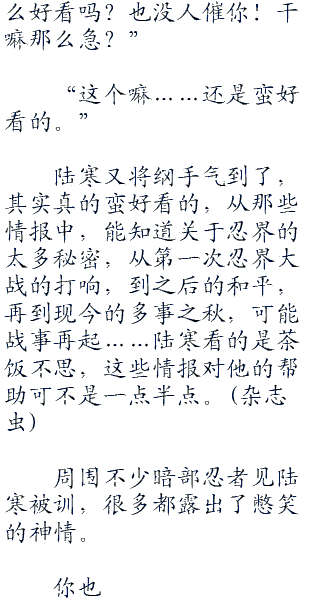 么好看吗？也没人催你！干
嘛那么急？”
“这个嘛……还是蛮好
看的。”
陆寒又将纲手气到了，
其实真的蛮好看的，从那些
情报中，能知道关于忍界的
太多秘密，从第一次忍界大
战的打响，到之后的和平，
再到现今的多事之秋，可能
战事再起……陆寒看的是茶
饭不思，这些情报对他的帮
助可不是一点半点。（杂志
虫）
周围不少暗部忍者见陆
寒被训，很多都露出了憋笑
的神情。
你也